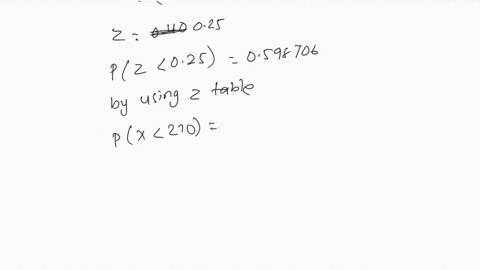 z = 0.40 0.25
P(z < 0.25) = 0.598706
by using z table
P(x < 270) =